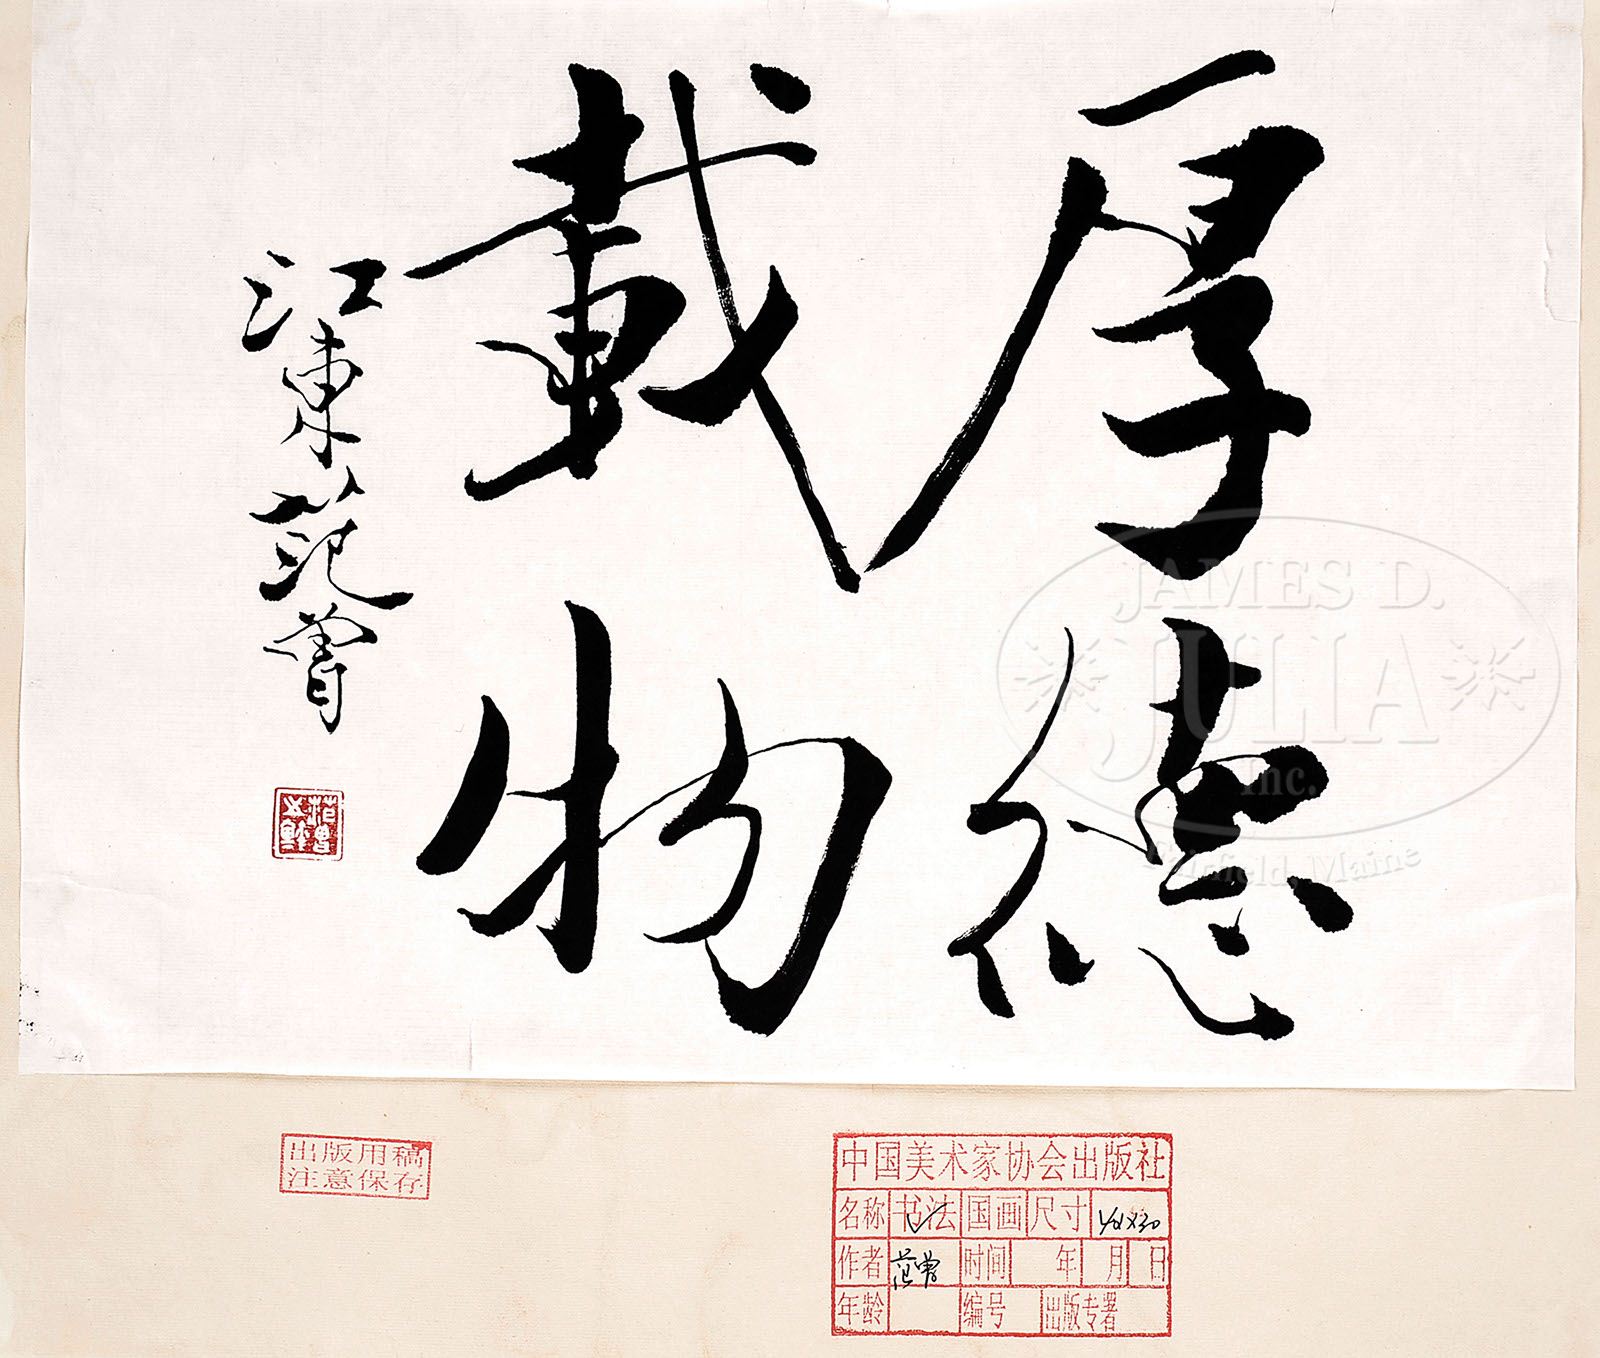 厚德
載物
江東范曾
JAMES D.
JULIA
Inc.
Fairfield, Maine
出版用稿
注意保存
中国美术家协会出版社
名称 书法 国画 尺寸
作者 范曾 时间 年 月 日
年龄 编号 出版专署